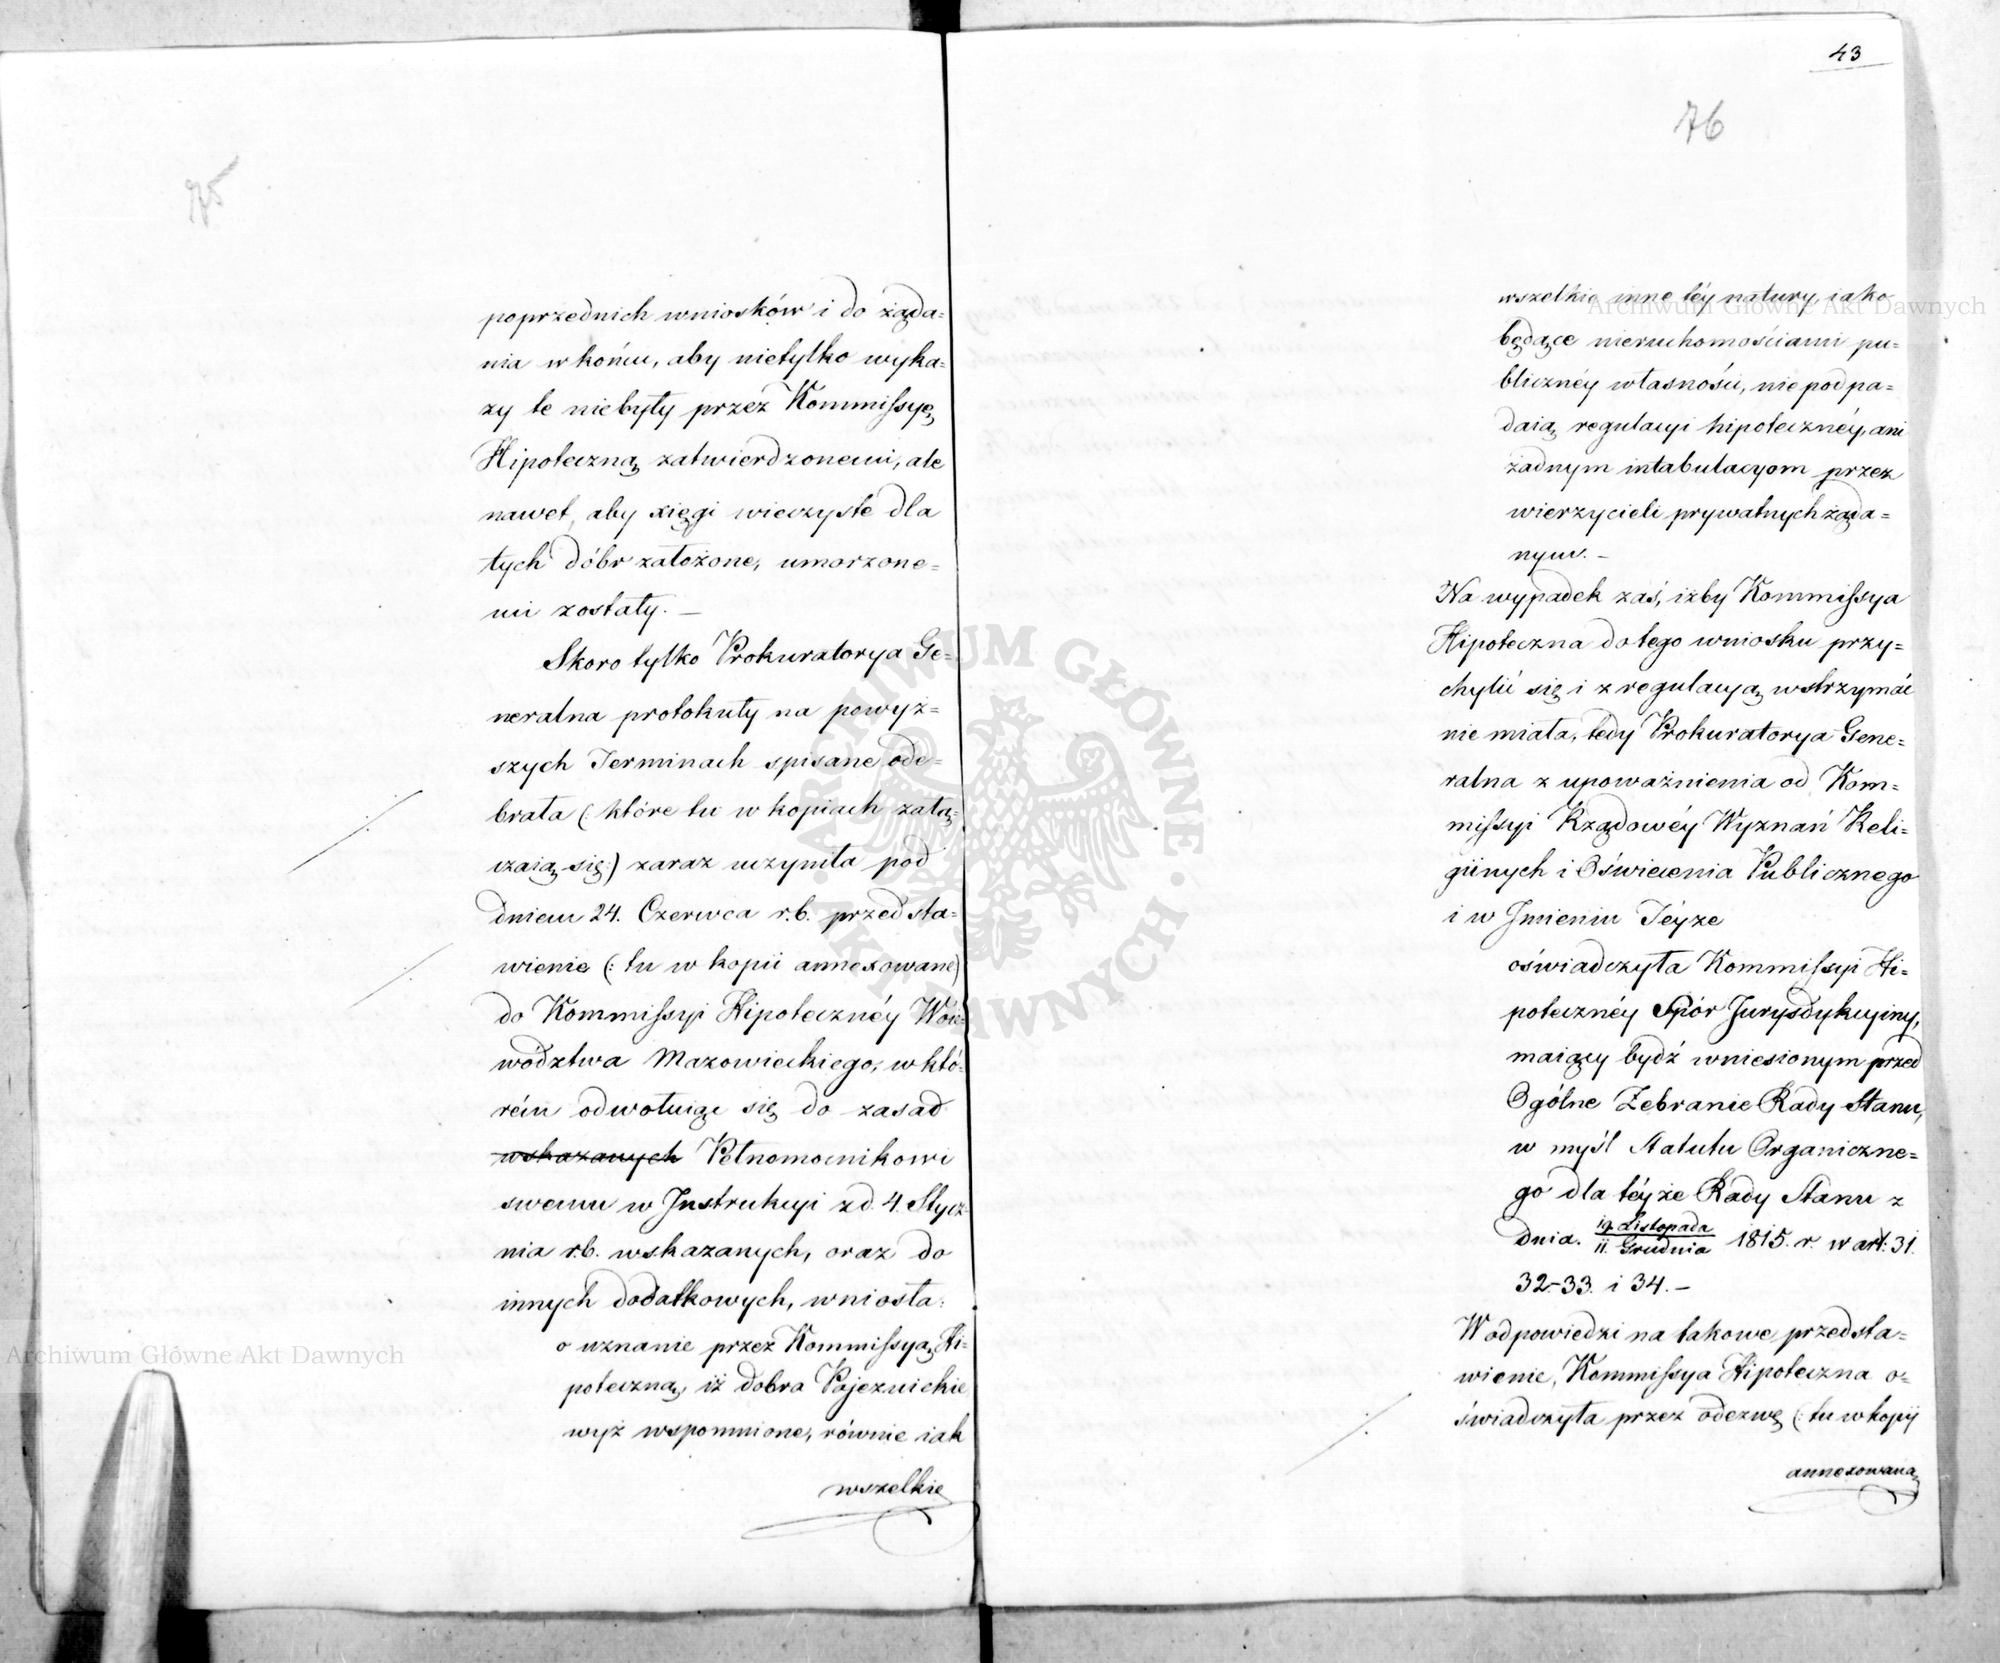 75
poprzednich wniosków i do żąda=
nia w końcu, aby nietylko wyka=
zy te niebyły przez Kommissyę
Hipoteczną zatwierdzonemi, ale
nawet, aby xięgi wieczyste dla
tych dóbr założone, umorzone=
mi zostały. —
Skoro tylko Prokuratorya Ge=
neralna protokuły na powyż=
szych Terminach spisane ode=
brała (: które tu w kopiach załą=
czaią się:) zaraz uczyniła pod
dniem 24. Czerwca r.b. przedsta=
wienie (: tu w kopii annexowane)
do Kommissyi Hipotecznéy Wóie=
wództwa Mazowieckiego, w któ=
rém odwołuiąc się do zasad
wskazanych Pełnomocnikowi
swemu w Instrukcyi z d. 4. Stycz=
nia r.b. wskazanych, oraz do
innych dodatkowych, wniosła:
o uznanie przez Kommissyą Hi=
poteczną, iż dobra Pajęcznickie
wyż wspomnione, równie iak
wszelkie
43
76
wszelkie inne téy natury, iako
będące nieruchomościami pu=
blicznéy własności, nie podpa=
daią regulacyi hipotecznéy, ani
żadnym intabulacyom przez
wierzycieli prywatnych żąda=
nym. —
Na wypadek zaś, iżby Kommissya
Hipoteczna do tego wniosku przy=
chylić się i z regulacyą wstrzymać
nie miała, tedy Prokuratorya Gene=
ralna z upoważnienia od Kom=
missyi Rządowéy Wyznań Reli=
giinych i Oświecenia Publicznego
i w Imieniu Téyże
oświadczyła Kommissyi Hi=
potecznéy Spór Jurysdykcyiny,
maiący bydź wniesionym przed
Ogólne Zebranie Rady Stanu,
w myśl Statutu Organiczne=
go dla téyże Rady Stanu z
dnia. 19. Listopada / 11. Grudnia 1815. r. w art: 31.
32–33. i 34. —
W odpowiedzi na takowe przedsta=
wienie, Kommissya Hipoteczna o=
świadczyła przez odezwę (: tu w kopij
annexowaną
Archiwum Główne Akt Dawnych
Archiwum Główne Akt Dawnych
ARCHIWUM GŁÓWNE · AKT DAWNYCH ·